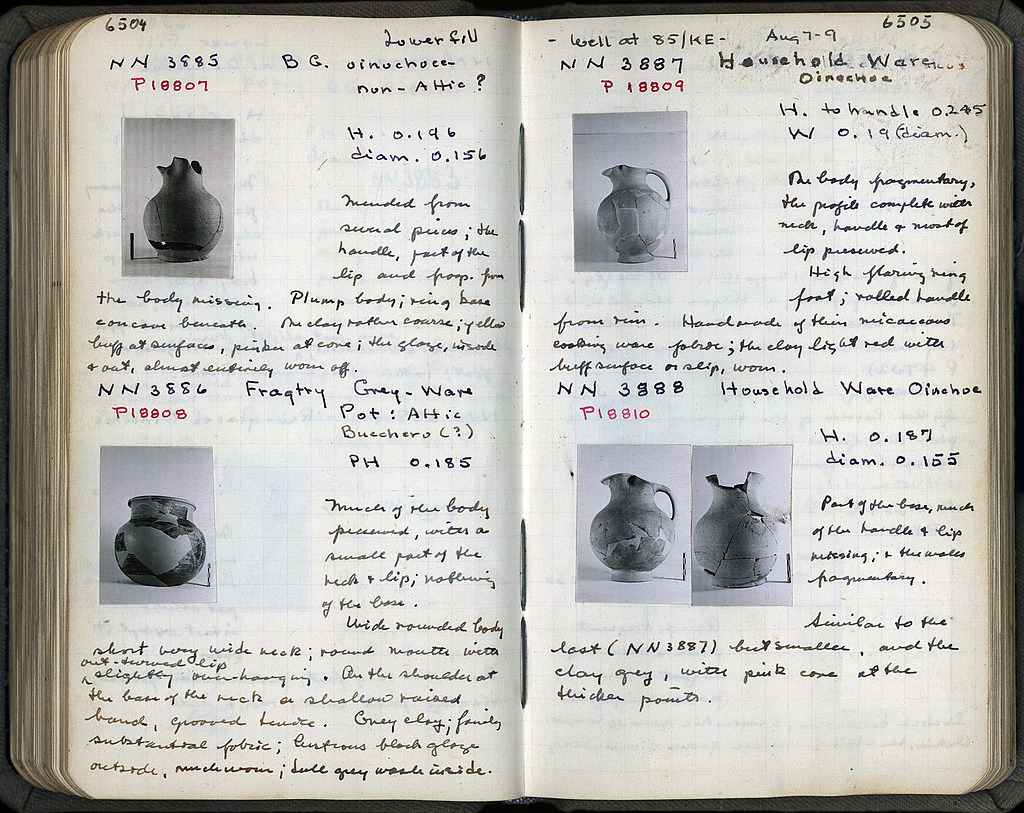 6504
Lower fill
NN 3885 B G. oinochoe-
P18807 non-Attic ?
H. 0.196
diam. 0.156
Mended from
several pieces ; the
handle, part of the
lip and frags. from
the body missing. Plump body; ring base
concave beneath. The clay rather coarse; yellow
buff at surfaces, pinker at core ; the glaze, inside
& out, almost entirely worn off.
NN 3886 Fragtry Grey-Ware
P18808 Pot : Attic
Bucchero (?)
PH 0.185
Much of the body
preserved, with a
small part of the
neck & lip; nothing
of the base.
Wide rounded body
short very wide neck; round mouth with
out-turned lip
slightly over-hanging. On the shoulder at
the base of the neck a shallow raised
band, grooved twice. Grey clay; fairly
substantial fabric; lustrous black glaze
outside, much worn; dull grey wash inside.
6505
- Well at 85/KE - Aug 7-9
NN 3887 Household Ware
P 18809 Oinochoe
H. to handle 0.245
W 0.19 (diam.)
The body fragmentary,
the profile complete with
neck, handle & most of
lip preserved.
High flaring ring
foot; rolled handle
from rim. Handmade of thin micaceous
cooking ware fabric; the clay light red with
buff surface or slip, worn.
NN 3888 Household Ware Oinochoe
P18810
H. 0.187
diam. 0.155
Part of the base, much
of the handle & lip
missing; & the walls
fragmentary.
Similar to the
last (NN3887) but smaller, and the
clay grey, with pink core at the
thicker points.